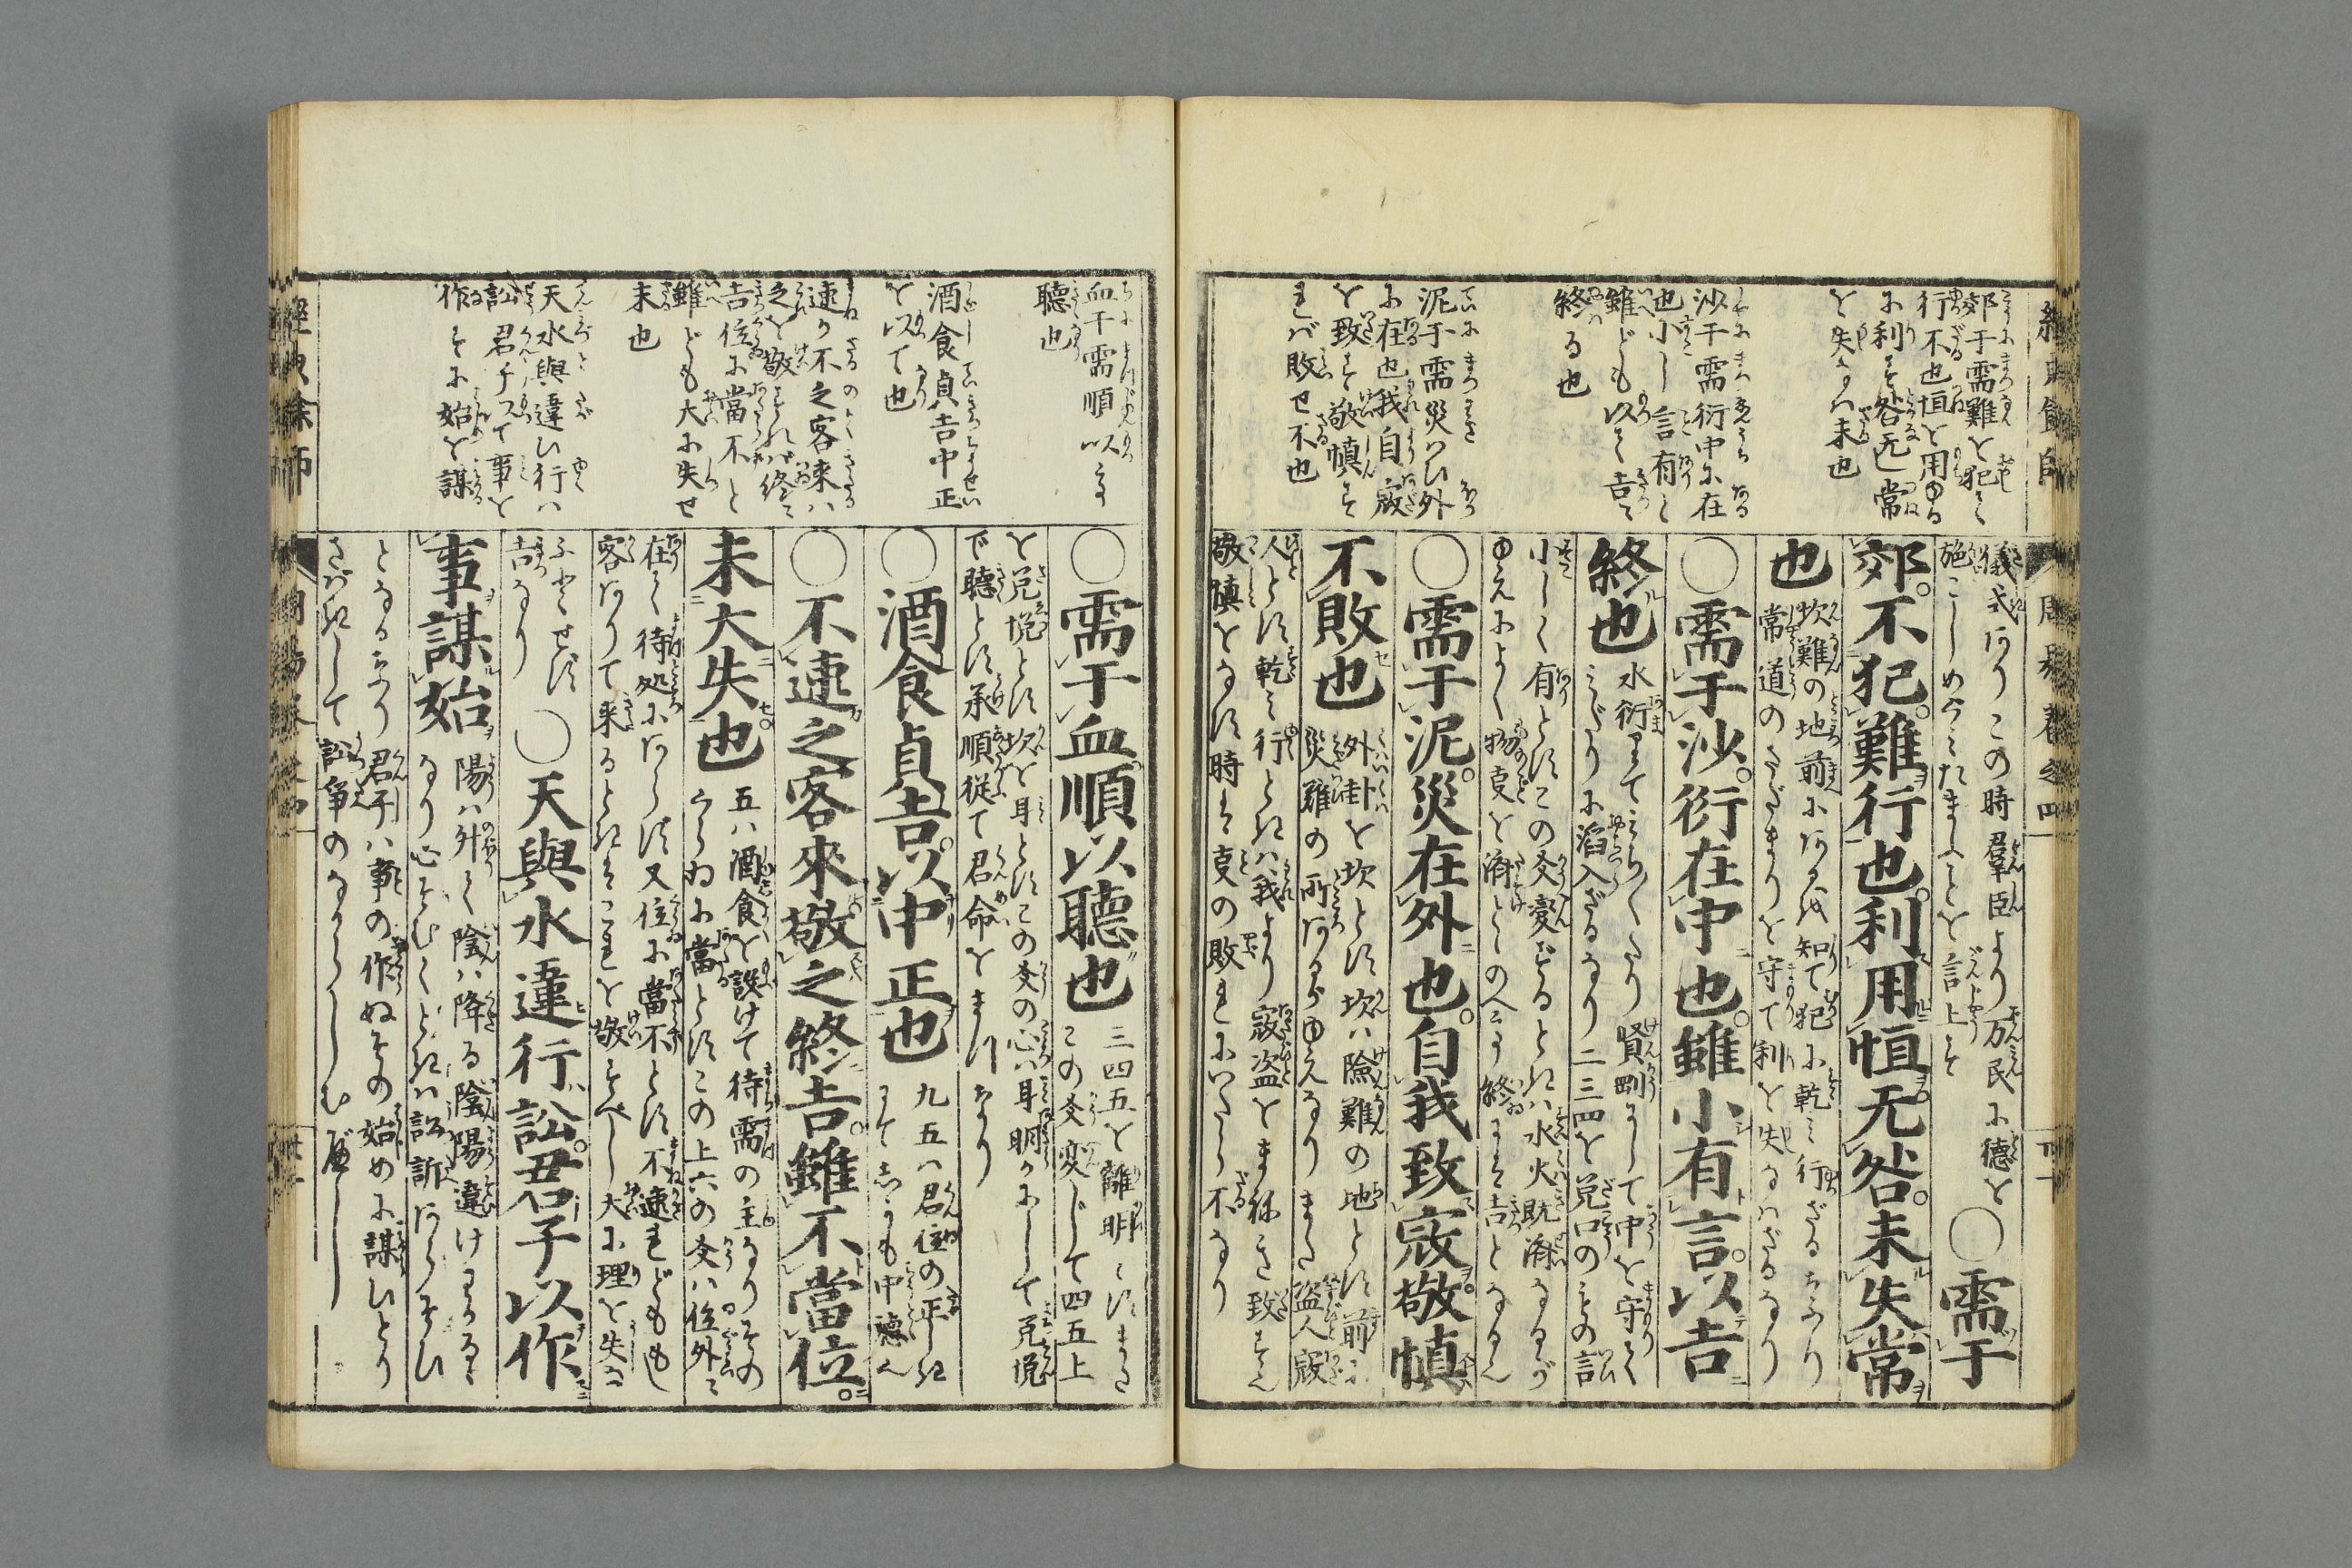 郊于需難を犯て
行不也恒を用ゆる
に利す咎无し常
を失るは未也
沙于需衍中に在
也小し言有と
雖ども以て吉て
終る也
泥于需災ひ外
に在也我自寇
を致す敬慎す
れば敗せ不也
儀式ありこの時羣臣より万民に徳を
施こし
○需于
郊。不犯難行也。利用恒无咎。未失常
也
坎難の地前にあるを知て犯に乾を行ざるなり
常道のさだまりを守て利を失なはざるなり
○需于沙。衍在中也。雖小有言。以吉
終也
水衍
賢剛にして中を守て
二三四を兌口の
小しく有とすこの爻変ずるときは水火既済なるが
ゆえによく物事を済
終
吉となるなり
○需于泥。災在外也。自我致寇。敬慎
不敗也
外卦を坎とす坎は險難の地とす前に
災難の所あるがゆえなりまた盗人寇
人とす乾を行ときは我より寇盗をまねき致すなり
敬慎をなす時は事の敗れにいたら不なり
周易卷之四
血于需順以て
聴也
酒食貞吉中正
を以て也
速か不之客來は
之を敬すれば終に
吉位に當不と
雖ども大に失せ
未也
天水與違ひ行は
訟君子以て事を
作すに始を謀
○需于血順以聽也
三四五を離明とすまた
この爻変じて四五上
を兌悦とす坎を耳とすこの爻の心は耳明かにして兌悦
で聴とす承順従て君命をまつなり
○酒食貞吉。以中正也
九五は君位の正しき
にて
中徳
○不速之客來。敬之終吉。雖不當位。
未大失也
五は酒食を設けて待需の主なりその
くらゐに當とすこの上六の爻は位外に
在て待処にあらず又位に當不とす不速れどももし
客ありて來るときはこれを敬すべし大に理を失こ
吉なり
○天與水違行訟。君子以作
事謀始
陽は升て陰は降る陰陽違けわかるゝ
なり心そむくときは訟訴あらそひ
となるなり君子は事の作ぬその始めに謀ひとり
さばきして訟争のなからしむべし
經典餘師